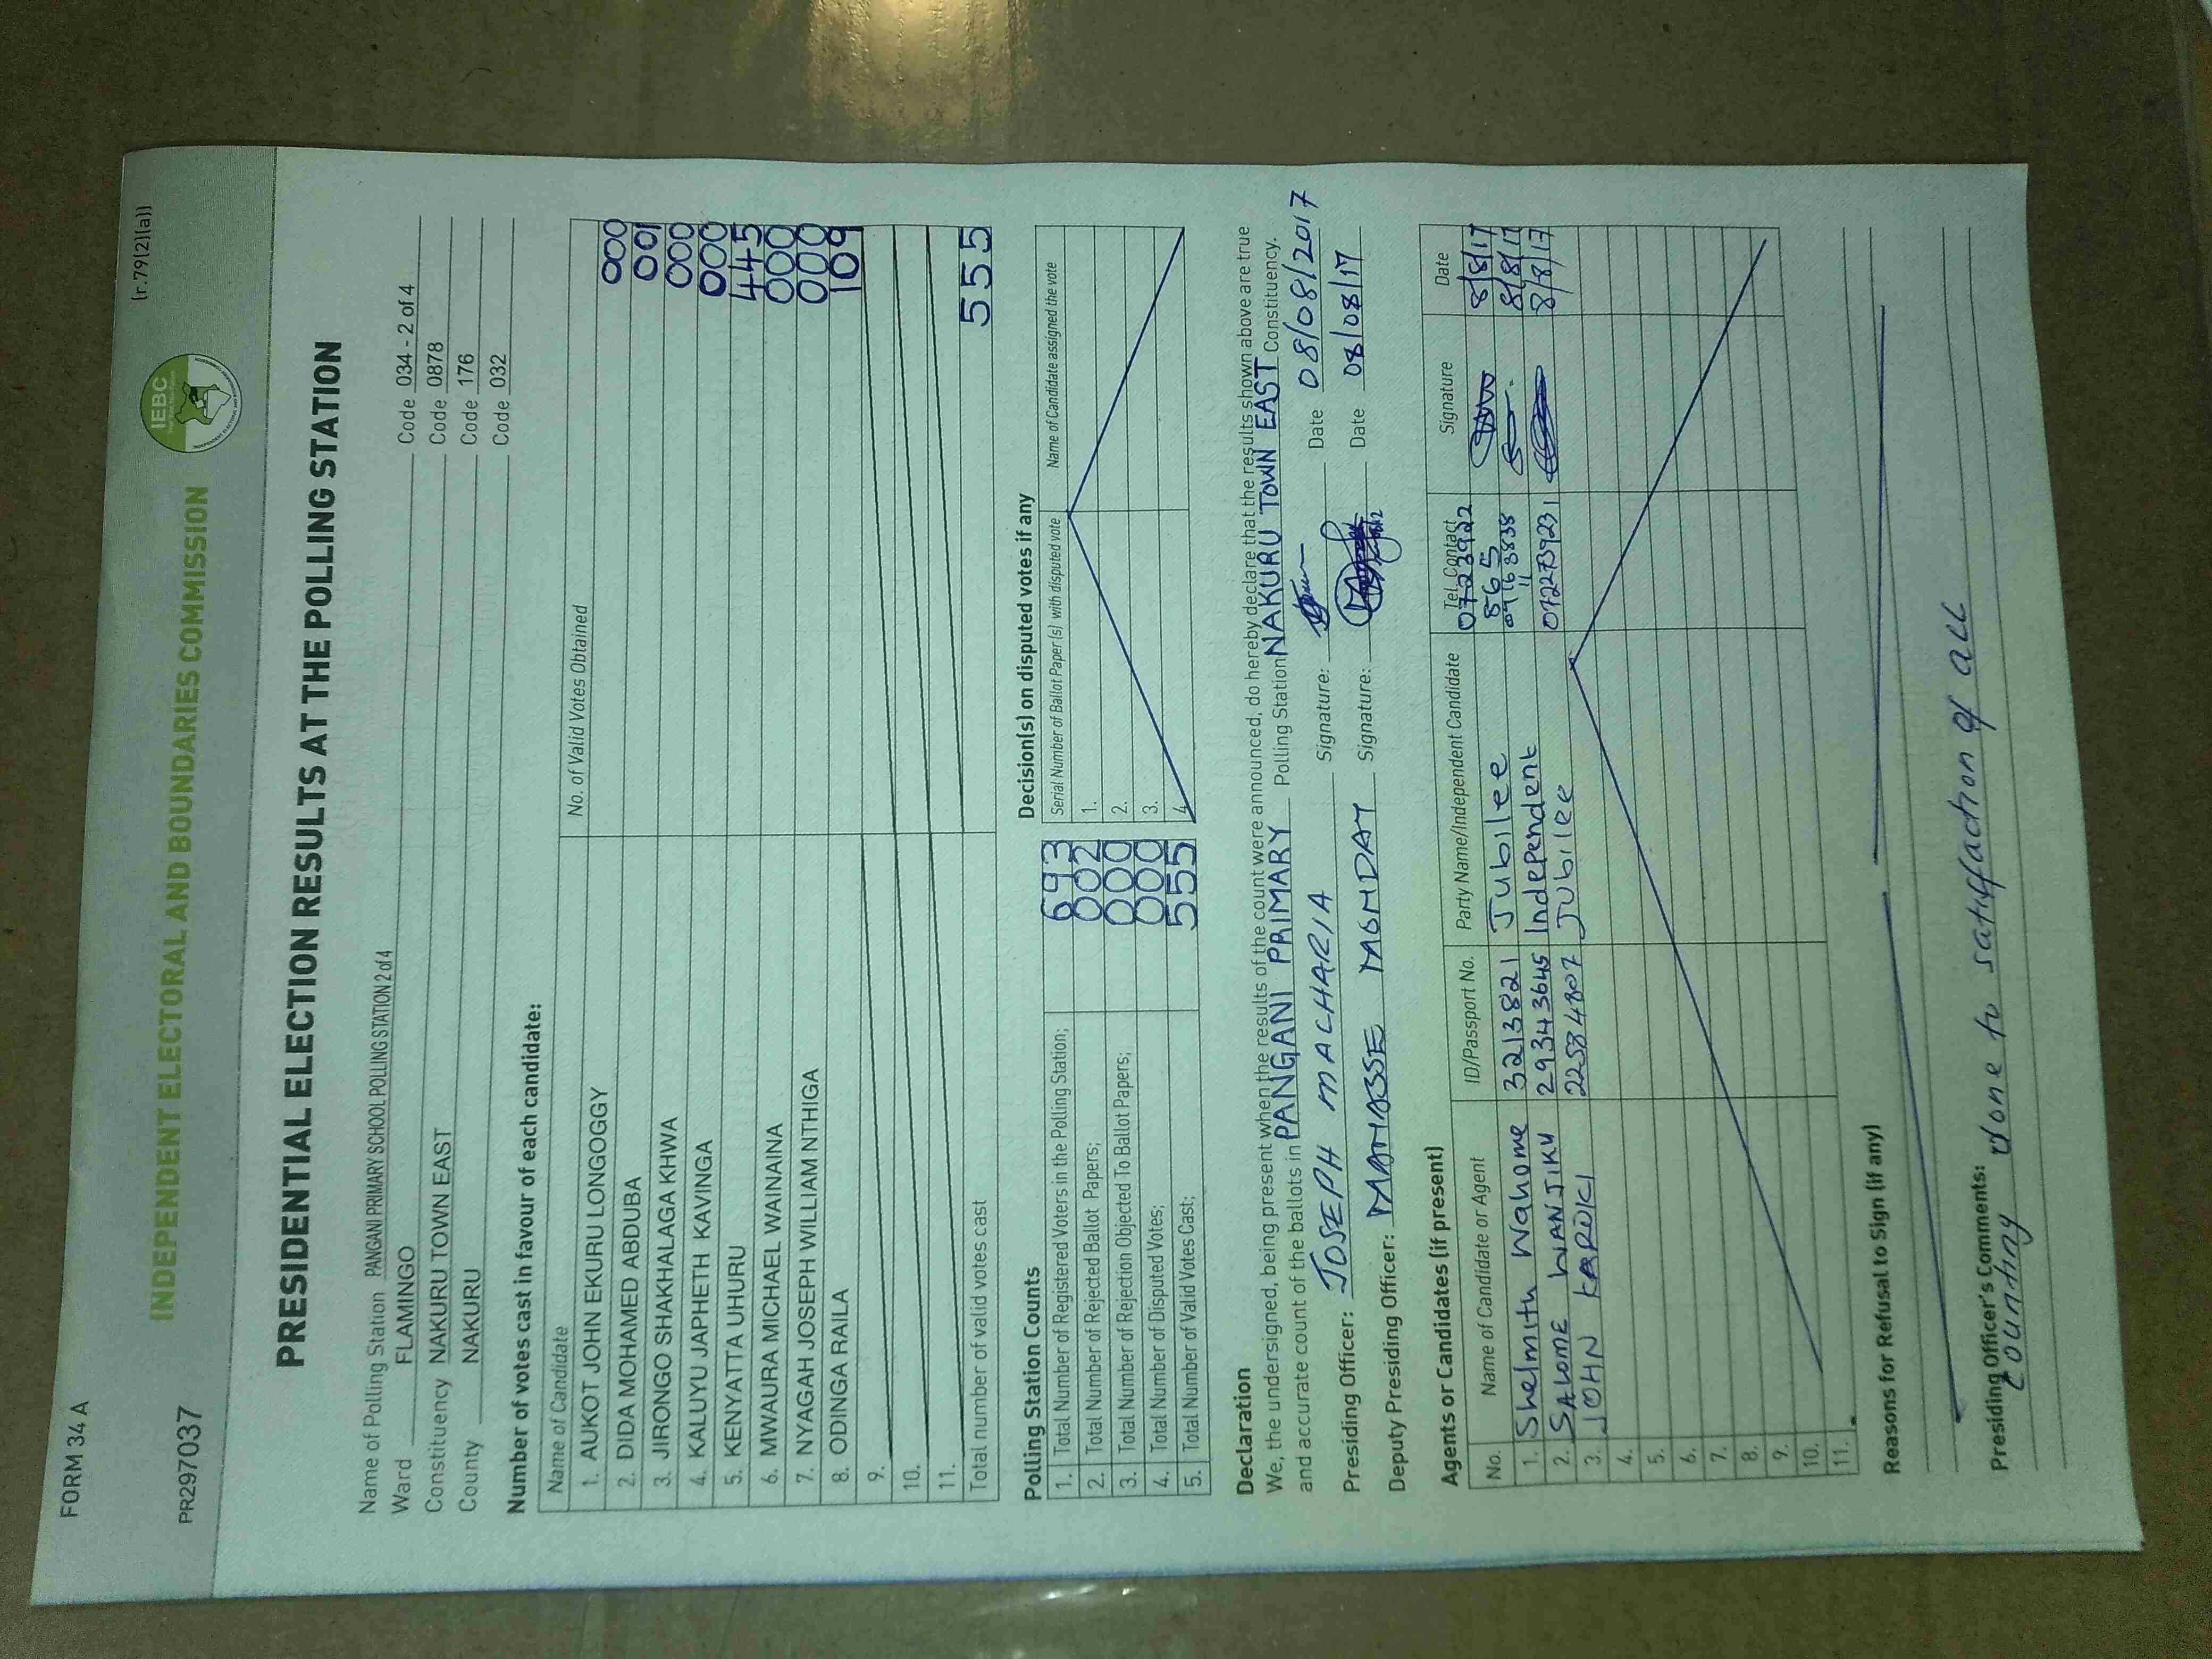 FORM 34 A
(r.79(2)(a))
PR297037
INDEPENDENT ELECTORAL AND BOUNDARIES COMMISSION
IEBC
PRESIDENTIAL ELECTION RESULTS AT THE POLLING STATION
Name of Polling Station PANGANI PRIMARY SCHOOL POLLING STATION 2 of 4 Code 034 - 2 of 4
Ward FLAMINGO Code 0878
Constituency NAKURU TOWN EAST Code 176
County NAKURU Code 032
Number of votes cast in favour of each candidate:
Name of Candidate No. of Valid Votes Obtained
1. AUKOT JOHN EKURU LONGOGGY 000
2. DIDA MOHAMED ABDUBA 001
3. JIRONGO SHAKHALAGA KHWA 000
4. KALUYU JAPHETH KAVINGA 000
5. KENYATTA UHURU 445
6. MWAURA MICHAEL WAINAINA 000
7. NYAGAH JOSEPH WILLIAM NTHIGA 000
8. ODINGA RAILA 109
9.
10.
11.
Total number of valid votes cast 555
Polling Station Counts
1. Total Number of Registered Voters in the Polling Station; 693
2. Total Number of Rejected Ballot Papers; 002
3. Total Number of Rejection Objected To Ballot Papers; 000
4. Total Number of Disputed Votes; 000
5. Total Number of Valid Votes Cast; 555
Decision(s) on disputed votes if any
Serial Number of Ballot Paper(s) with disputed vote Name of Candidate assigned the vote
1.
2.
3.
4.
Declaration
We, the undersigned, being present when the results of the count were announced, do hereby declare that the results shown above are true
and accurate count of the ballots in PANGANI PRIMARY Polling Station NAKURU TOWN EAST Constituency.
Presiding Officer: JOSEPH MACHARIA Signature: Date 08/08/2017
Deputy Presiding Officer: Signature: Date 08/08/17
Agents or Candidates (if present)
No. Name of Candidate or Agent ID/Passport No. Party Name/Independent Candidate Tel. Contact Signature Date
1. Shelmith Wahome 32138821 Jubilee 8/8/17
2. SALOME WANJIKU 29343645 Independent 8/8/17
3. JOHN KARIUKI 22534807 Jubilee 0722739231 8/8/17
4.
5.
6.
7.
8.
9.
10.
11.
Reasons for Refusal to Sign (if any)
Presiding Officer's Comments:
Counting done to satisfaction of all